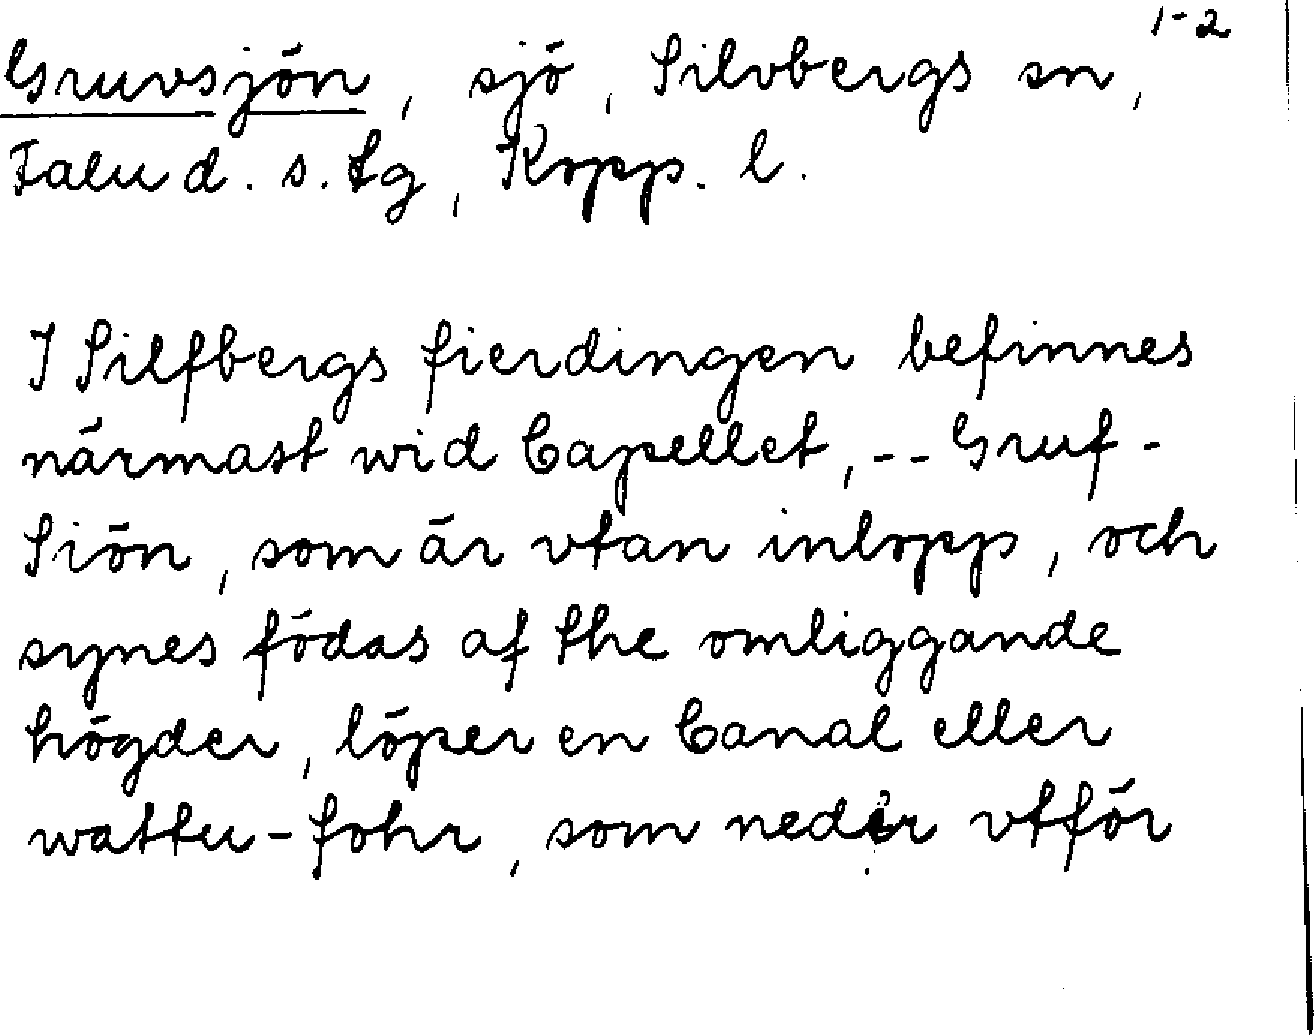 1-2
Gruvsjön, sjö, Silvbergs sn,
Falu d. s. tg, Kopp. l.
I Silfbergs fierdingen befinnes
närmast wid Capellet, -- Gruf-
Siön, som är vtan inlopp, och
synes födas af the omliggande
högder, löper en Canal eller
wattu-fohr, som neder vtför